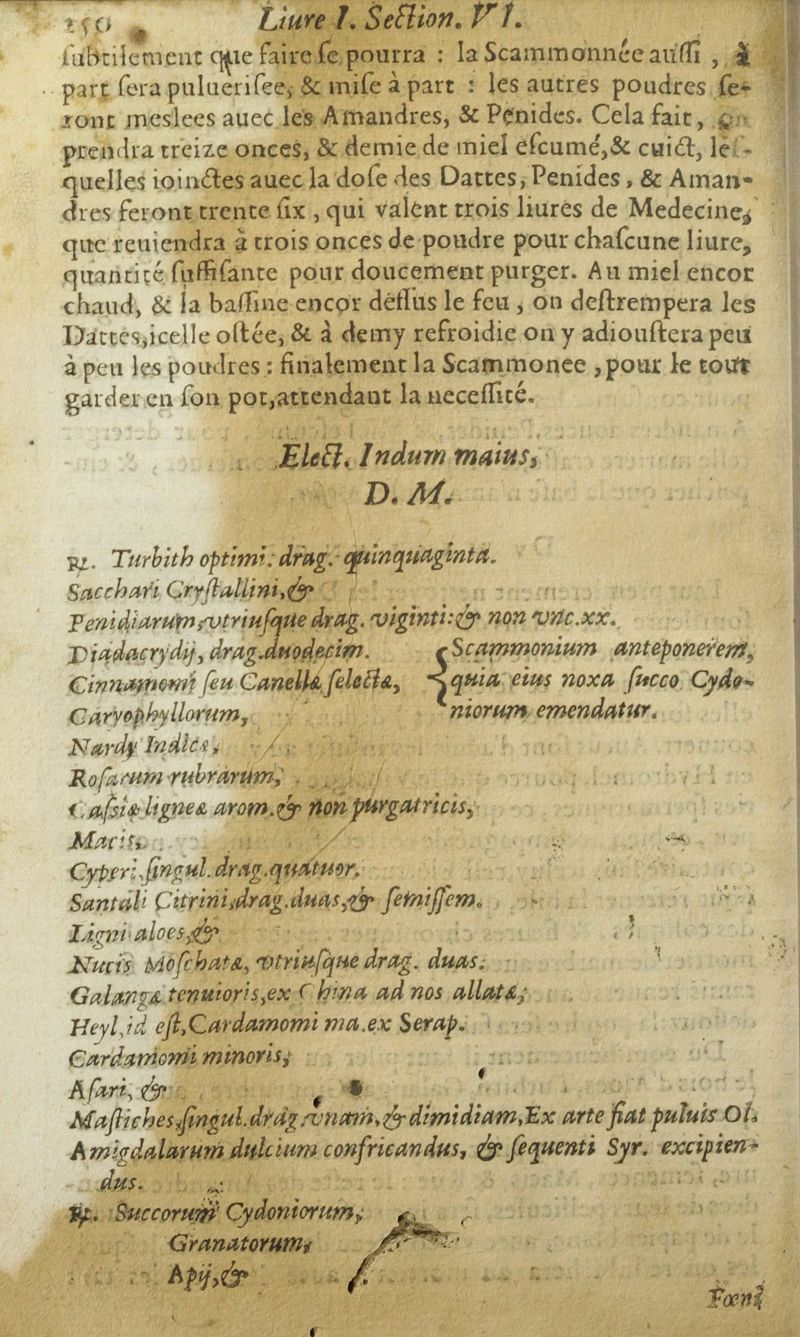 250 Liure I. Section. VI.
subtilement que faire se pourra : la Scammonnée aussi , à
part sera puluerisee, & mise à part : les autres poudres se-
ront meslees auec les Amandres, & Penides. Cela fait,
prendra treize onces, & demie de miel escumé, & cuict, les-
quelles ioinctes auec la dose des Dattes, Penides, & Aman-
dres feront trente six , qui valent trois liures de Medecine,
que reuiendra à trois onces de poudre pour chascune liure,
quantité suffisante pour doucement purger. Au miel encor
chaud, & la bassine encor dessus le feu , on destrempera les
Dattes,icelle ostée, & à demy refroidie on y adioustera peu
à peu les poudres : finalement la Scammonee ,pour le tout
garder en son pot,attendant la necessité.
Elect. Indum maius,
D. M.
℞. Turbith optimi. drag. quinquaginta.
Sacchari Crystallini,&
Penidiarum,vtriusque drag. viginti:& non vnc.xx.
Diadacrydij, drag.duodecim. Scammonium anteponerem,
Cinnamomi seu Canellæ selectæ, quia eius noxa succo Cydo-
Caryophyllorum, niorum emendatur.
Nardi Indicæ,
Rosarum rubrarum,
Cassiæ ligneæ arom.& non purgatricis,
Macis,
Cyperi,singul.drag.quatuor.
Santali Citrini,drag.duas,& semissem.
Ligni aloes,&
Nucis Moschatæ, vtriusque drag. duas.
Galangæ tenuioris,ex China ad nos allatæ,
Heyl,id est,Cardamomi ma.ex Serap.
Cardamomi minoris,
Asari, &
Mastiches,singul.drag.vnam,& dimidiam,Ex arte fiat puluis Ol.
Amigdalarum dulcium confricandus, & sequenti Syr. excipien-
dus.
℞. Succorum Cydoniorum,
Granatorum,
Apij,&
Fœni